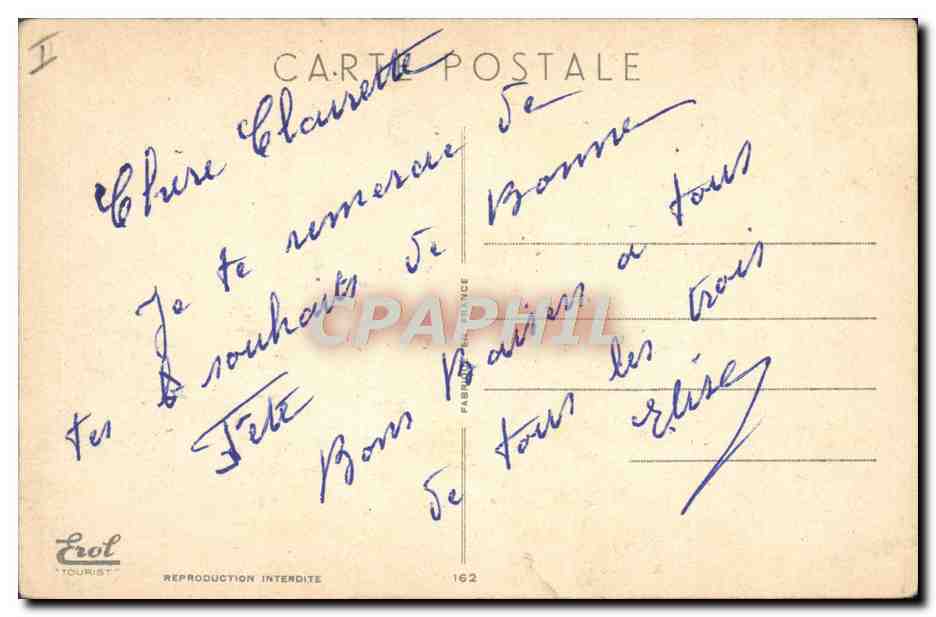 I
CARTE POSTALE
Chère Clairette
Je te remercie de
tes souhaits de Bonne
Fête
Bons Baisers a tous
de tous les trois
Elise
CPAPHIL
FABRIQUÉ EN FRANCE
Erol
"TOURIST"
REPRODUCTION INTERDITE
162